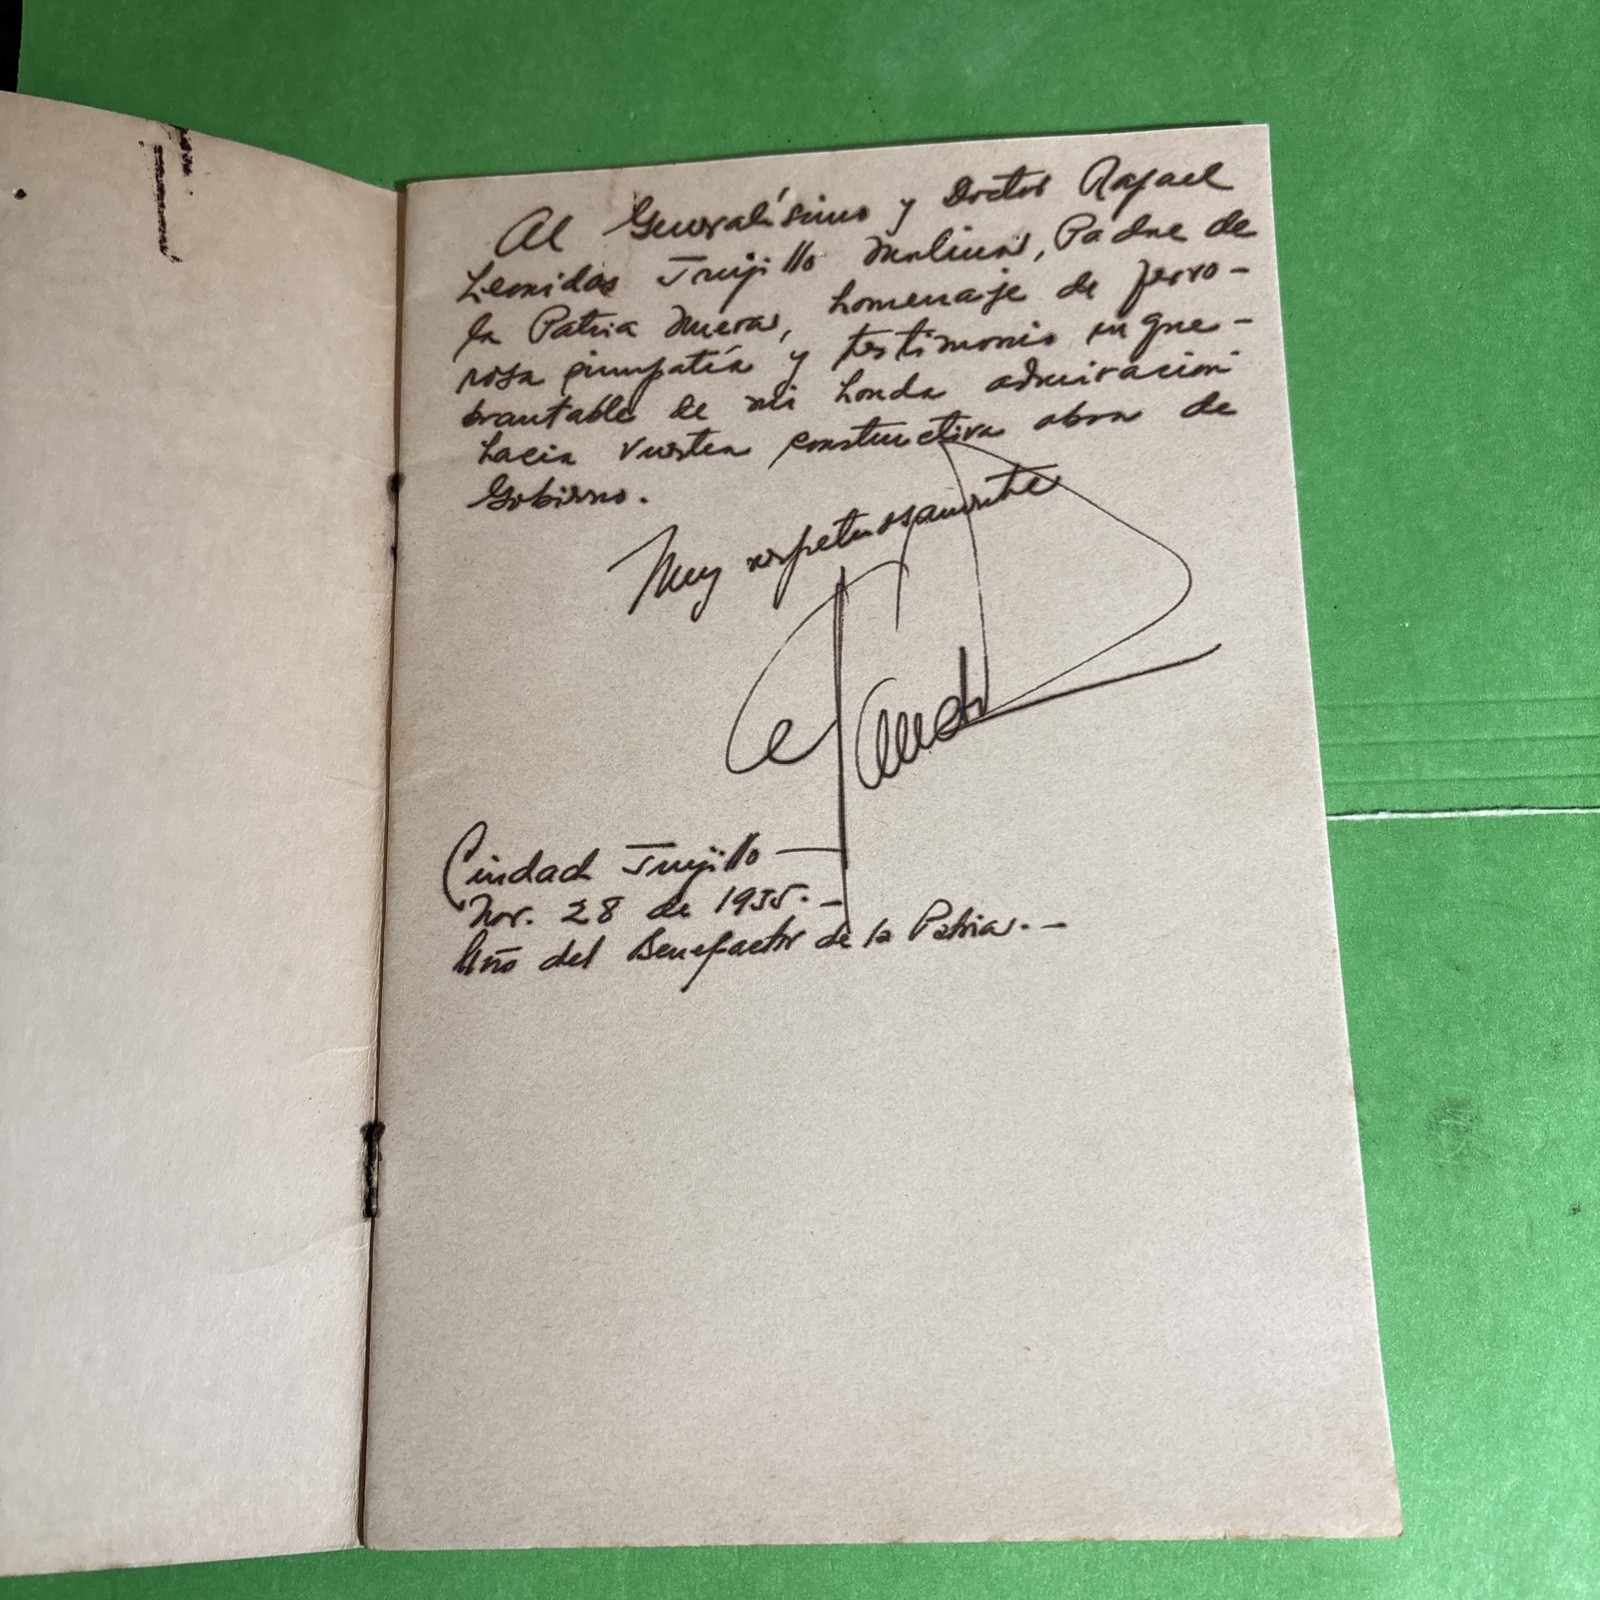 Al Generalísimo y Doctor Rafael
Leonidas Trujillo Molina, Padre de
la Patria Nueva, homenaje de fervo-
rosa simpatía y testimonio inque-
brantable de mi honda admiración
hacia vuestra constructiva obra de
Gobierno.
Muy respetuosamente
Ciudad Trujillo —
Nov. 28 de 1955.-
Año del Benefactor de la Patria.-